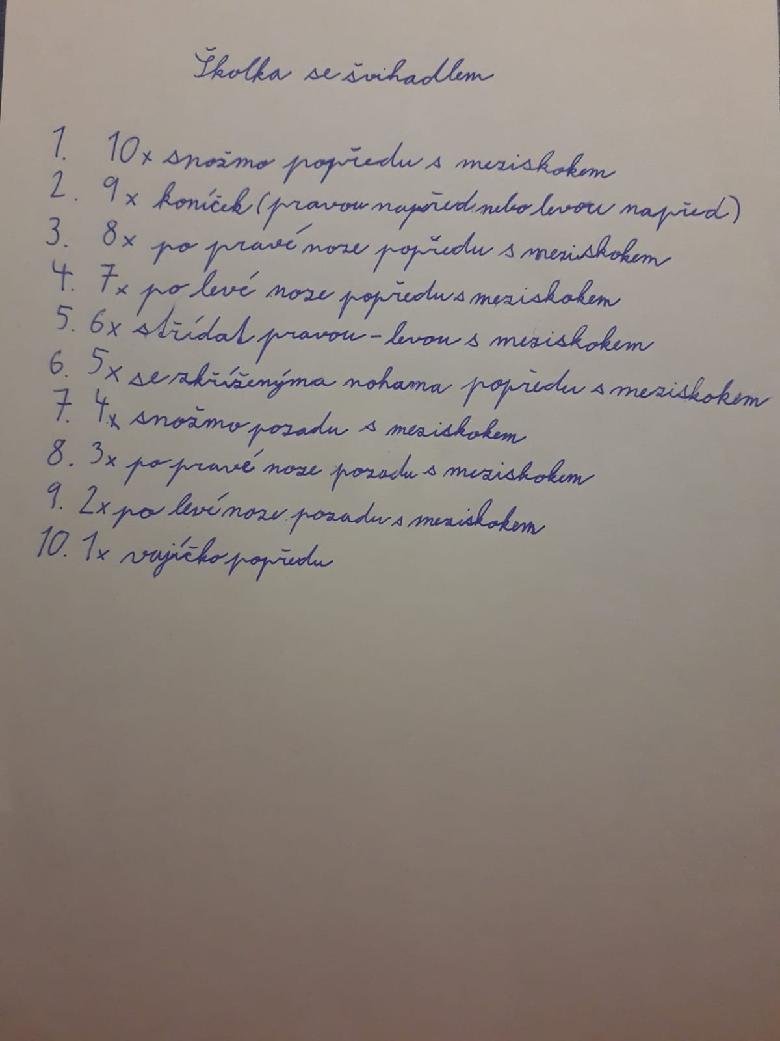 Školka se švihadlem
1. 10x snožmo popředu s meziskokem
2. 9x koníček (pravou napřed nebo levou napřed)
3. 8x po pravé noze popředu s meziskokem
4. 7x po levé noze popředu s meziskokem
5. 6x střídat pravou - levou s meziskokem
6. 5x se zkříženýma nohama popředu s meziskokem
7. 4x snožmo pozadu s meziskokem
8. 3x po pravé noze pozadu s meziskokem
9. 2x po levé noze pozadu s meziskokem
10. 1x vajíčko popředu